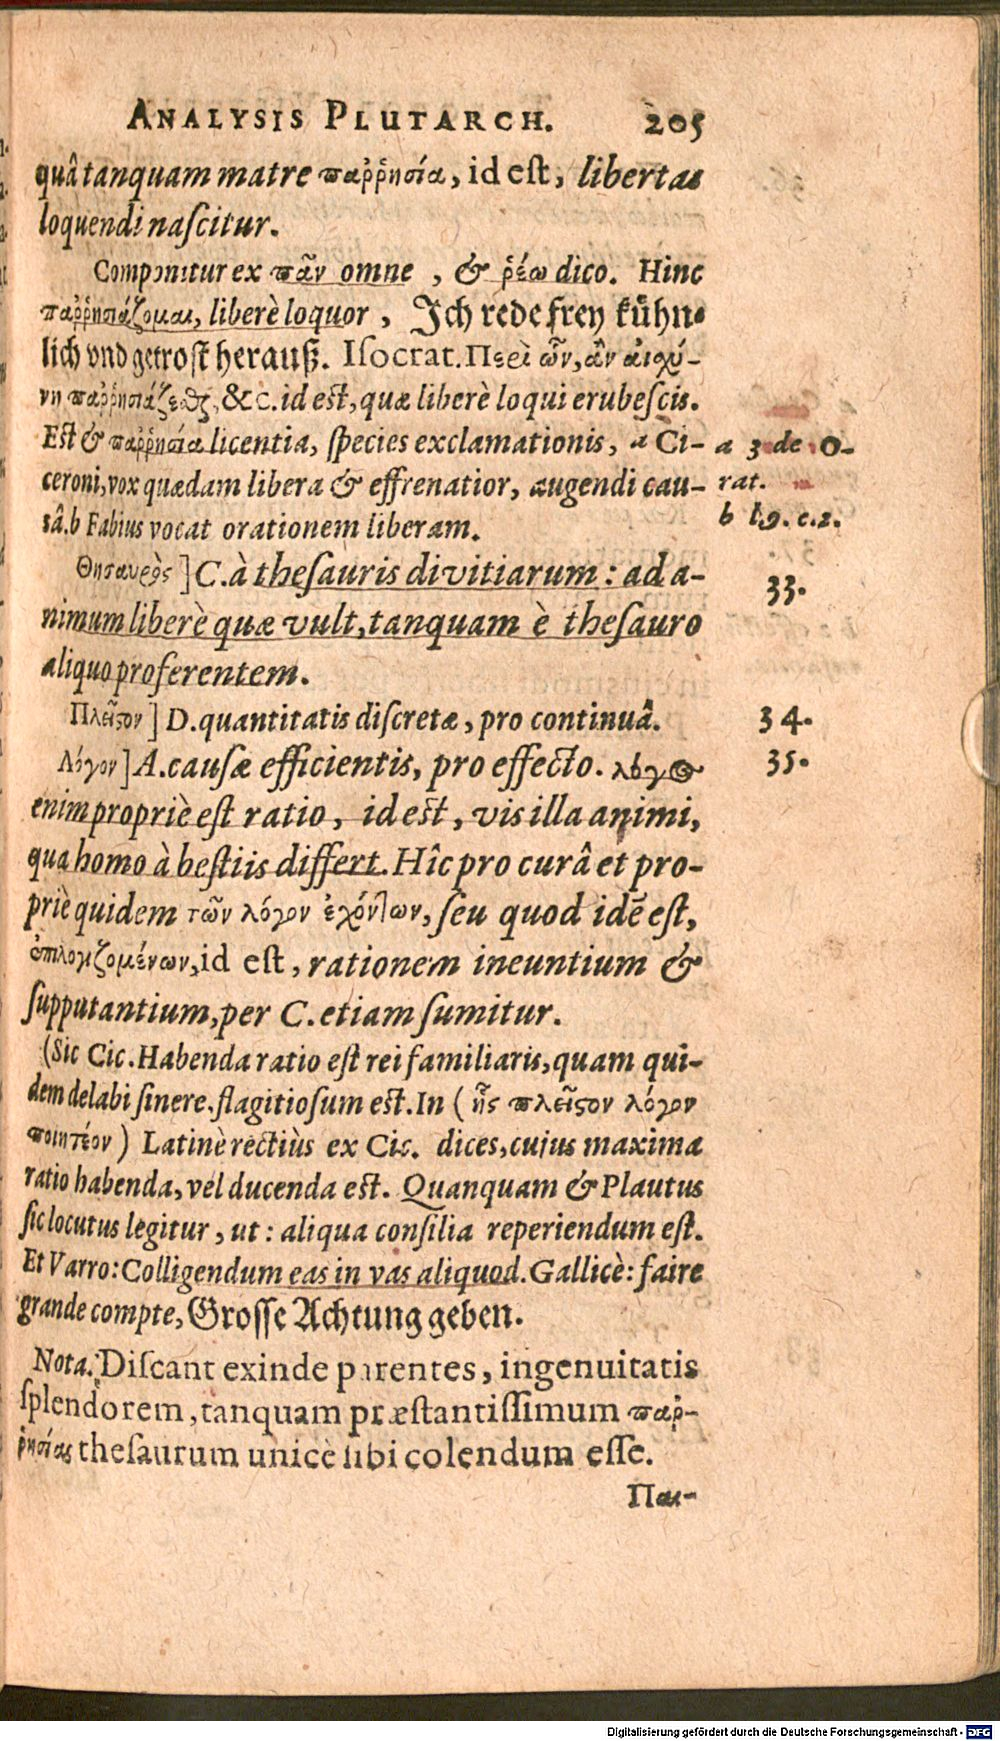 ANALYSIS PLUTARCH. 205
quâ tanquam matre παῤῥησία, id eſt, libertas
loquendi naſcitur.
Componitur ex πᾶν omne , & ῥέω dico. Hinc
παῤῥησιάζομαι, liberè loquor , Ich rede frey kühn-
lich vnd getroſt herauß. Iſocrat. Περὶ ὧν, ἂν αἰσχύ-
νῃ παῤῥησιάζεσθαι, &c. id eſt, quæ liberè loqui erubeſcis.
Eſt & παῤῥησία licentia, ſpecies exclamationis, a Ci- a 3 de O-
ceroni, vox quædam libera & effrenatior, augendi cau- rat.
sâ. b Fabius vocat orationem liberam. b l.9. c.2.
Θησαυρὸς ] C. à theſauris divitiarum : ad a- 33.
nimum liberè quæ vult, tanquam è theſauro
aliquo proferentem.
Πλεῖστον ] D. quantitatis diſcretæ, pro continuâ. 34.
Λόγον ] A. cauſæ efficientis, pro effecto. λόγος 35.
enim propriè eſt ratio, id eſt, vis illa animi,
qua homo à beſtiis differt. Hîc pro curâ et pro-
priè quidem τῶν λόγον ἐχόντων, ſeu quod idẽ eſt,
ἐπιλογιζομένων, id eſt, rationem ineuntium &
ſupputantium, per C. etiam ſumitur.
(Sic Cic. Habenda ratio eſt rei familiaris, quam qui-
dem delabi ſinere. flagitioſum eſt. In ( ἧς πλεῖστον λόγον
ποιητέον ) Latinè rectiùs ex Cic. dices, cujus maxima
ratio habenda, vel ducenda eſt. Quanquam & Plautus
ſic locutus legitur, ut : aliqua conſilia reperiendum eſt.
Et Varro: Colligendum eas in vas aliquod. Gallicè: faire
grande compte, Groſſe Achtung geben.
Nota. Diſcant exinde parentes, ingenuitatis
ſplendorem, tanquam præſtantiſſimum παῤ-
ῥησίας theſaurum unicè ſibi colendum eſſe.
Παι-
Digitalisierung gefördert durch die Deutsche Forschungsgemeinschaft - DFG